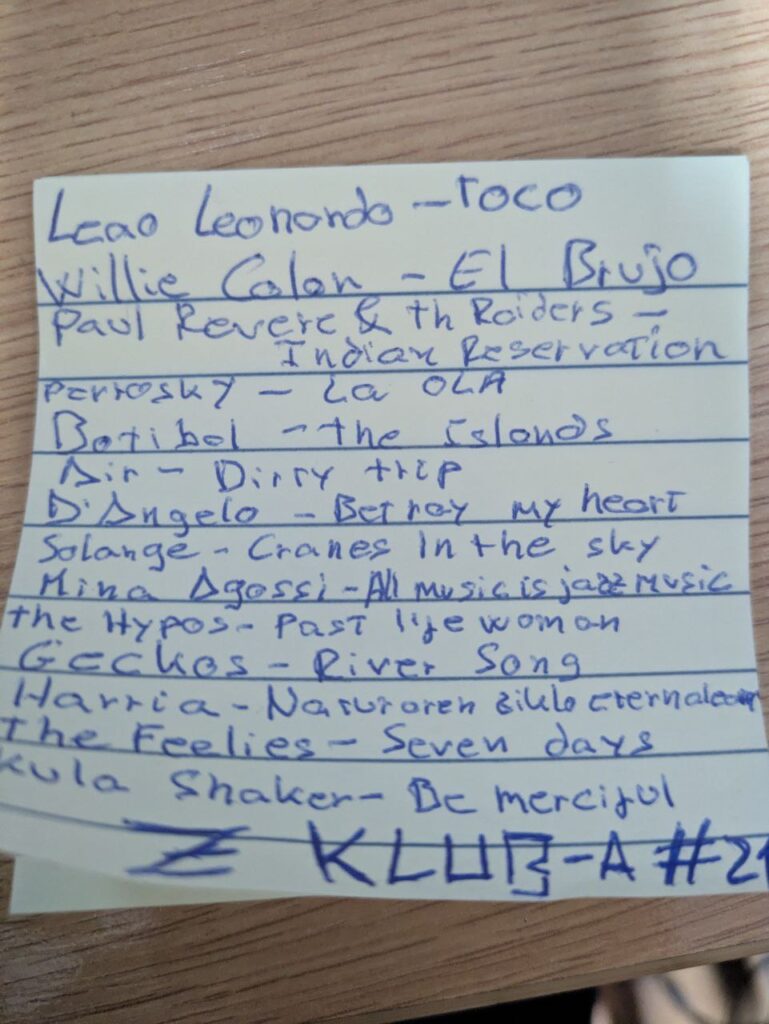 Leao Leonardo - Toco
Willie Colon - El Brujo
Paul Revere & th Raiders -
Indian Reservation
Perrosky - La OLA
Batibol - the Islands
Air - Dirty trip
D'Angelo - Betray my heart
Solange - Cranes in the sky
Mina Agossi - All music is jazz music
the Hypos - Past life woman
Geckos - River Song
Harria - Naturaren ziklo eternale
The Feelies - Seven days
Kula Shaker - Be merciful
Z KLUB-A #2